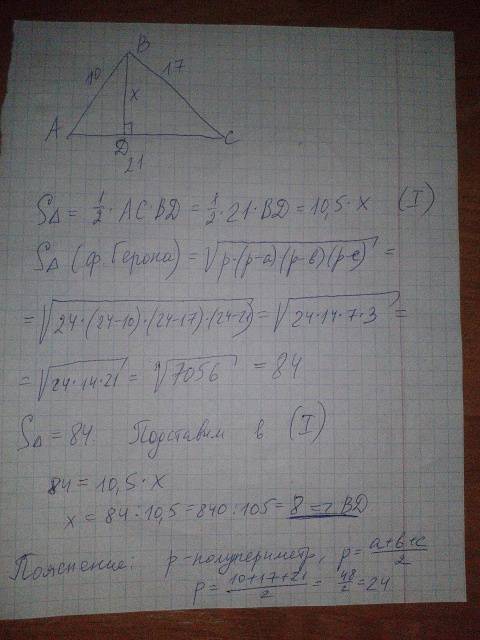 B
10 17
x
A D C
21
S△ = 1/2 · AC · BD = 1/2 · 21 · BD = 10,5 · x (I)
S△ (ф. Герона) = √p·(p-a)(p-в)(p-c) =
= √24·(24-10)·(24-17)·(24-21) = √24·14·7·3 =
= √24·14·21 = √7056 = 84
S△ = 84. Подставим в (I)
84 = 10,5 · x
x = 84 : 10,5 = 840 : 105 = 8 => BD
Пояснение: p-полупериметр, p = a+в+c/2
p = 10+17+21/2 = 48/2 = 24